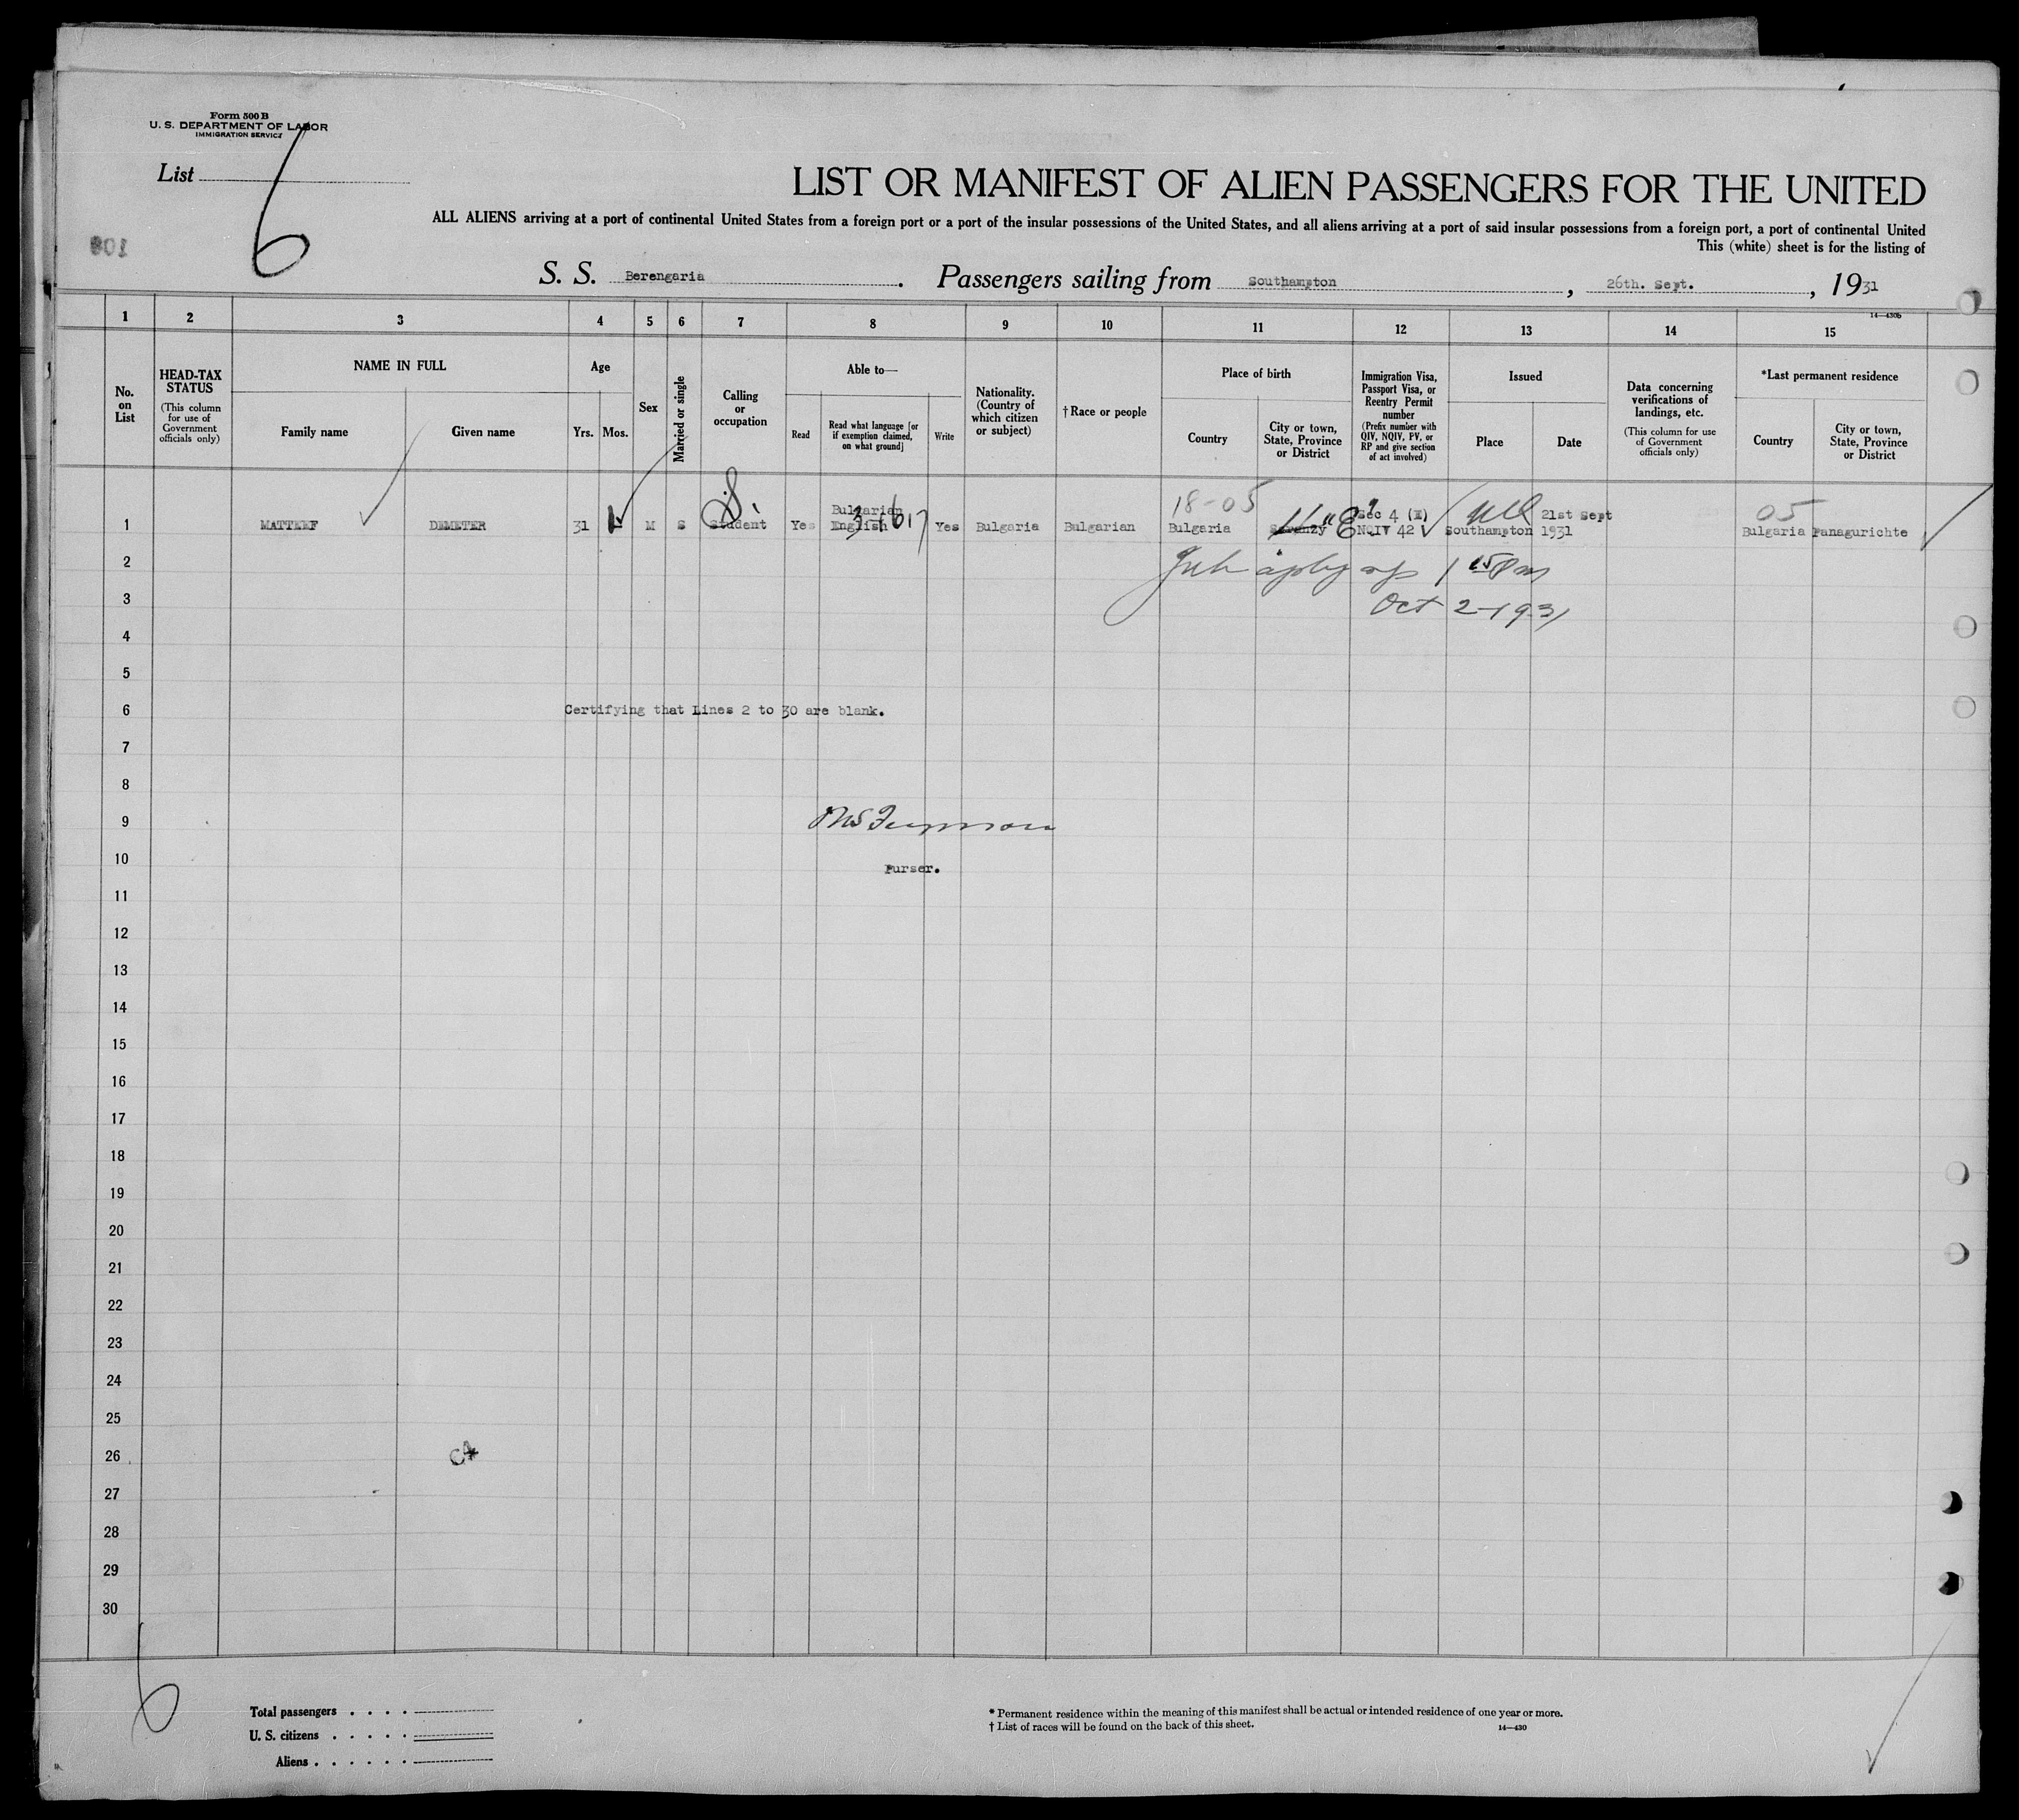 Form 500 B
U. S. DEPARTMENT OF LABOR
IMMIGRATION SERVICE
List
6
LIST OR MANIFEST OF ALIEN PASSENGERS FOR THE UNITED
ALL ALIENS arriving at a port of continental United States from a foreign port or a port of the insular possessions of the United States, and all aliens arriving at a port of said insular possessions from a foreign port, a port of continental United
This (white) sheet is for the listing of
S. S. Berengaria. Passengers sailing from Southampton, 26th. Sept., 1931
14—430b
1 2 3 4 5 6 7 8 9 10 11 12 13 14 15
No. on List
HEAD-TAX STATUS
(This column for use of Government officials only)
NAME IN FULL
Family name
Given name
Age
Yrs.
Mos.
Sex
Married or single
Calling or occupation
Able to—
Read
Read what language [or if exemption claimed, on what ground]
Write
Nationality. (Country of which citizen or subject)
†Race or people
Place of birth
Country
City or town, State, Province or District
Immigration Visa, Passport Visa, or Reentry Permit number
(Prefix number with QIV, NQIV, PV, or RP and give section of act involved)
Issued
Place
Date
Data concerning verifications of landings, etc.
(This column for use of Government officials only)
*Last permanent residence
Country
City or town, State, Province or District
18-05
05
Bulgarian
Sec 4 (E)
21st Sept
1 MATTEEF DEMETER 31 M S Student Yes English Yes Bulgaria Bulgarian Bulgaria NQIV 42 Southampton 1931 Bulgaria Panagurichte
2
Oct 2-1931
3
4
5
6 Certifying that Lines 2 to 30 are blank.
7
8
9
10 Purser.
11
12
13
14
15
16
17
18
19
20
21
22
23
24
25
26
27
28
29
30
6
Total passengers
U. S. citizens
Aliens
* Permanent residence within the meaning of this manifest shall be actual or intended residence of one year or more.
† List of races will be found on the back of this sheet.
14—430